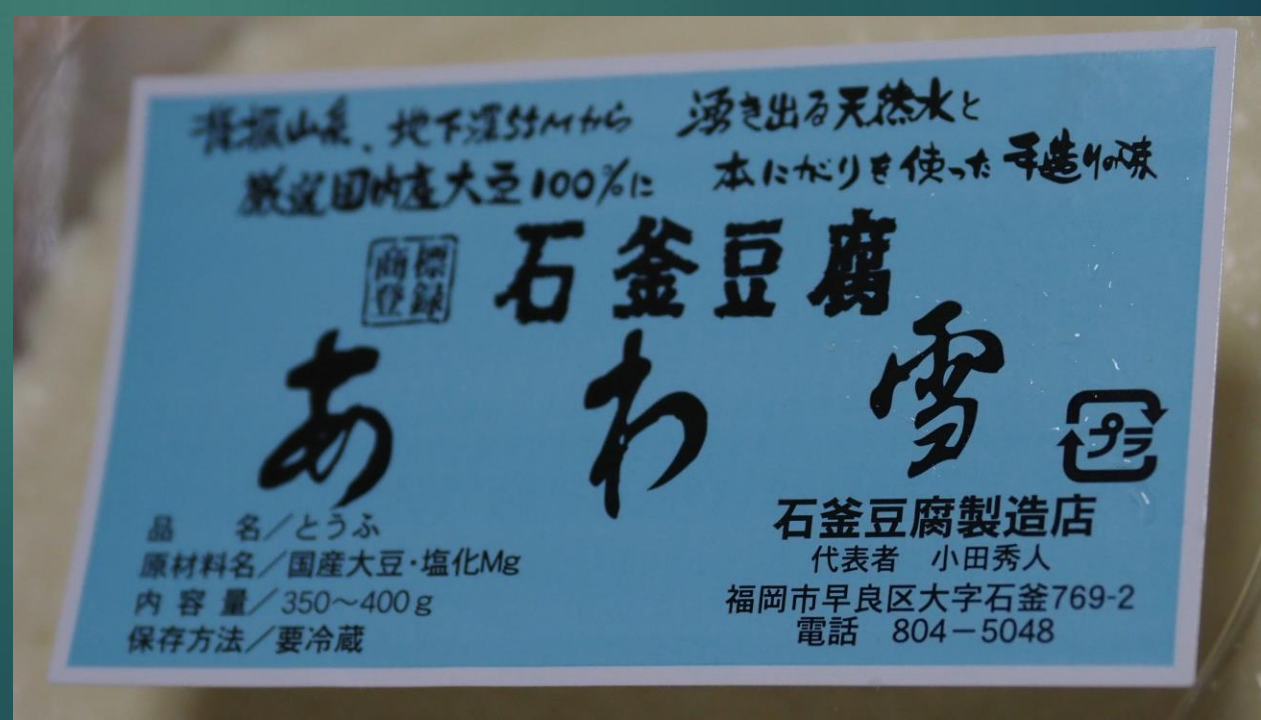 脊振山系、地下深55Mから 湧き出る天然水と
厳選国内産大豆100%に 本にがりを使った 手造りの味
商標登録 石釜豆腐
あわ雪
プラ
品名/とうふ
原材料名/国産大豆・塩化Mg
内容量/350〜400g
保存方法/要冷蔵
石釜豆腐製造店
代表者 小田秀人
福岡市早良区大字石釜769-2
電話 804-5048